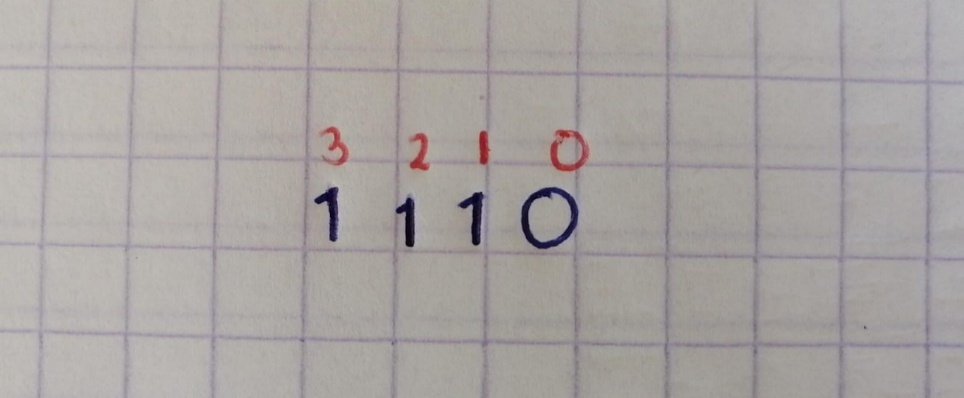 3 2 1 0
1 1 1 0